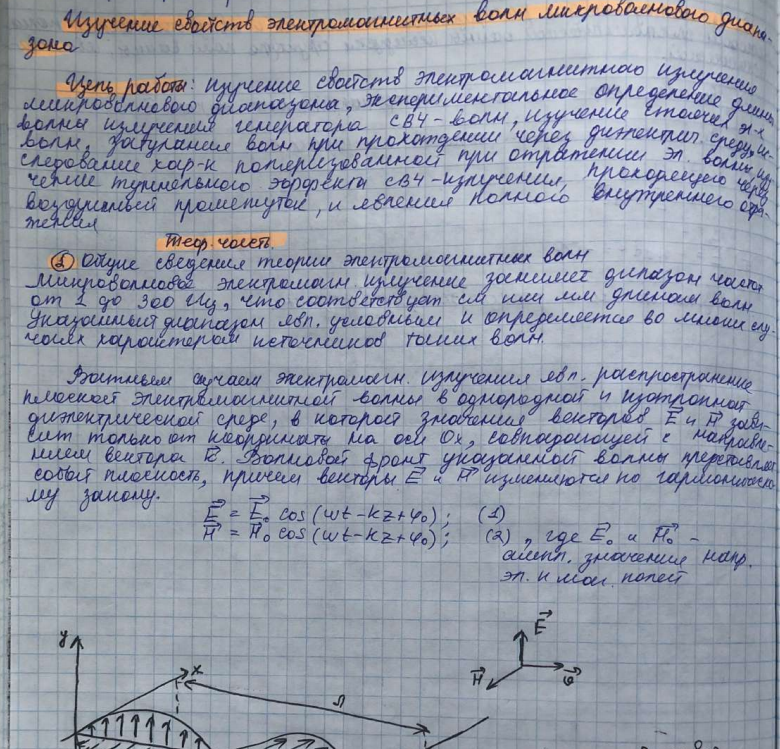 Изучение свойств электромагнитных волн микроволнового диапа-
зона
Цель работы: изучение свойств электромагнитного излучения
микроволнового диапазона, экспериментальное определение длины
волны излучения генератора СВЧ-волн, изучение стоячих эл-х
волн, затухания волн при прохождении через диэлектрич. среду, ис-
следование хар-к поляризованной при отражении эл. волны, изу-
чение туннельного эффекта СВЧ-излучения, проходящего через
воздушный промежуток, и явления полного внутреннего отра-
жения
Теор. часть.
1 Общие сведения теории электромагнитных волн
Микроволновое электромагн. излучение занимает дипазон частот
от 1 до 300 Гц, что соответствует см или мм длинам волн
Указанный диапазон явл. условным и определяется во многих слу-
чаях характером источников таких волн.
Важным случаем электромагн. излучения явл. распространение
плоской электромагнитной волны в однородной и изотропной
диэлектрической среде, в которой значения векторов E⃗ и H⃗ зави-
сит только от координаты на оси Ox, совпадающей с направле-
нием вектора k⃗. Волновой фронт указанной волны представляет
собой плоскость, причем векторы E⃗ и H⃗ изменяются по гармоническо-
му закону.
E⃗ = E⃗₀ cos (wt - kz + φ₀); (1)
H⃗ = H⃗₀ cos (wt - kz + φ₀); (2), где E⃗₀ и H⃗₀ -
ампл. значения напр.
эл. и маг. полей
y
x
E⃗
H⃗